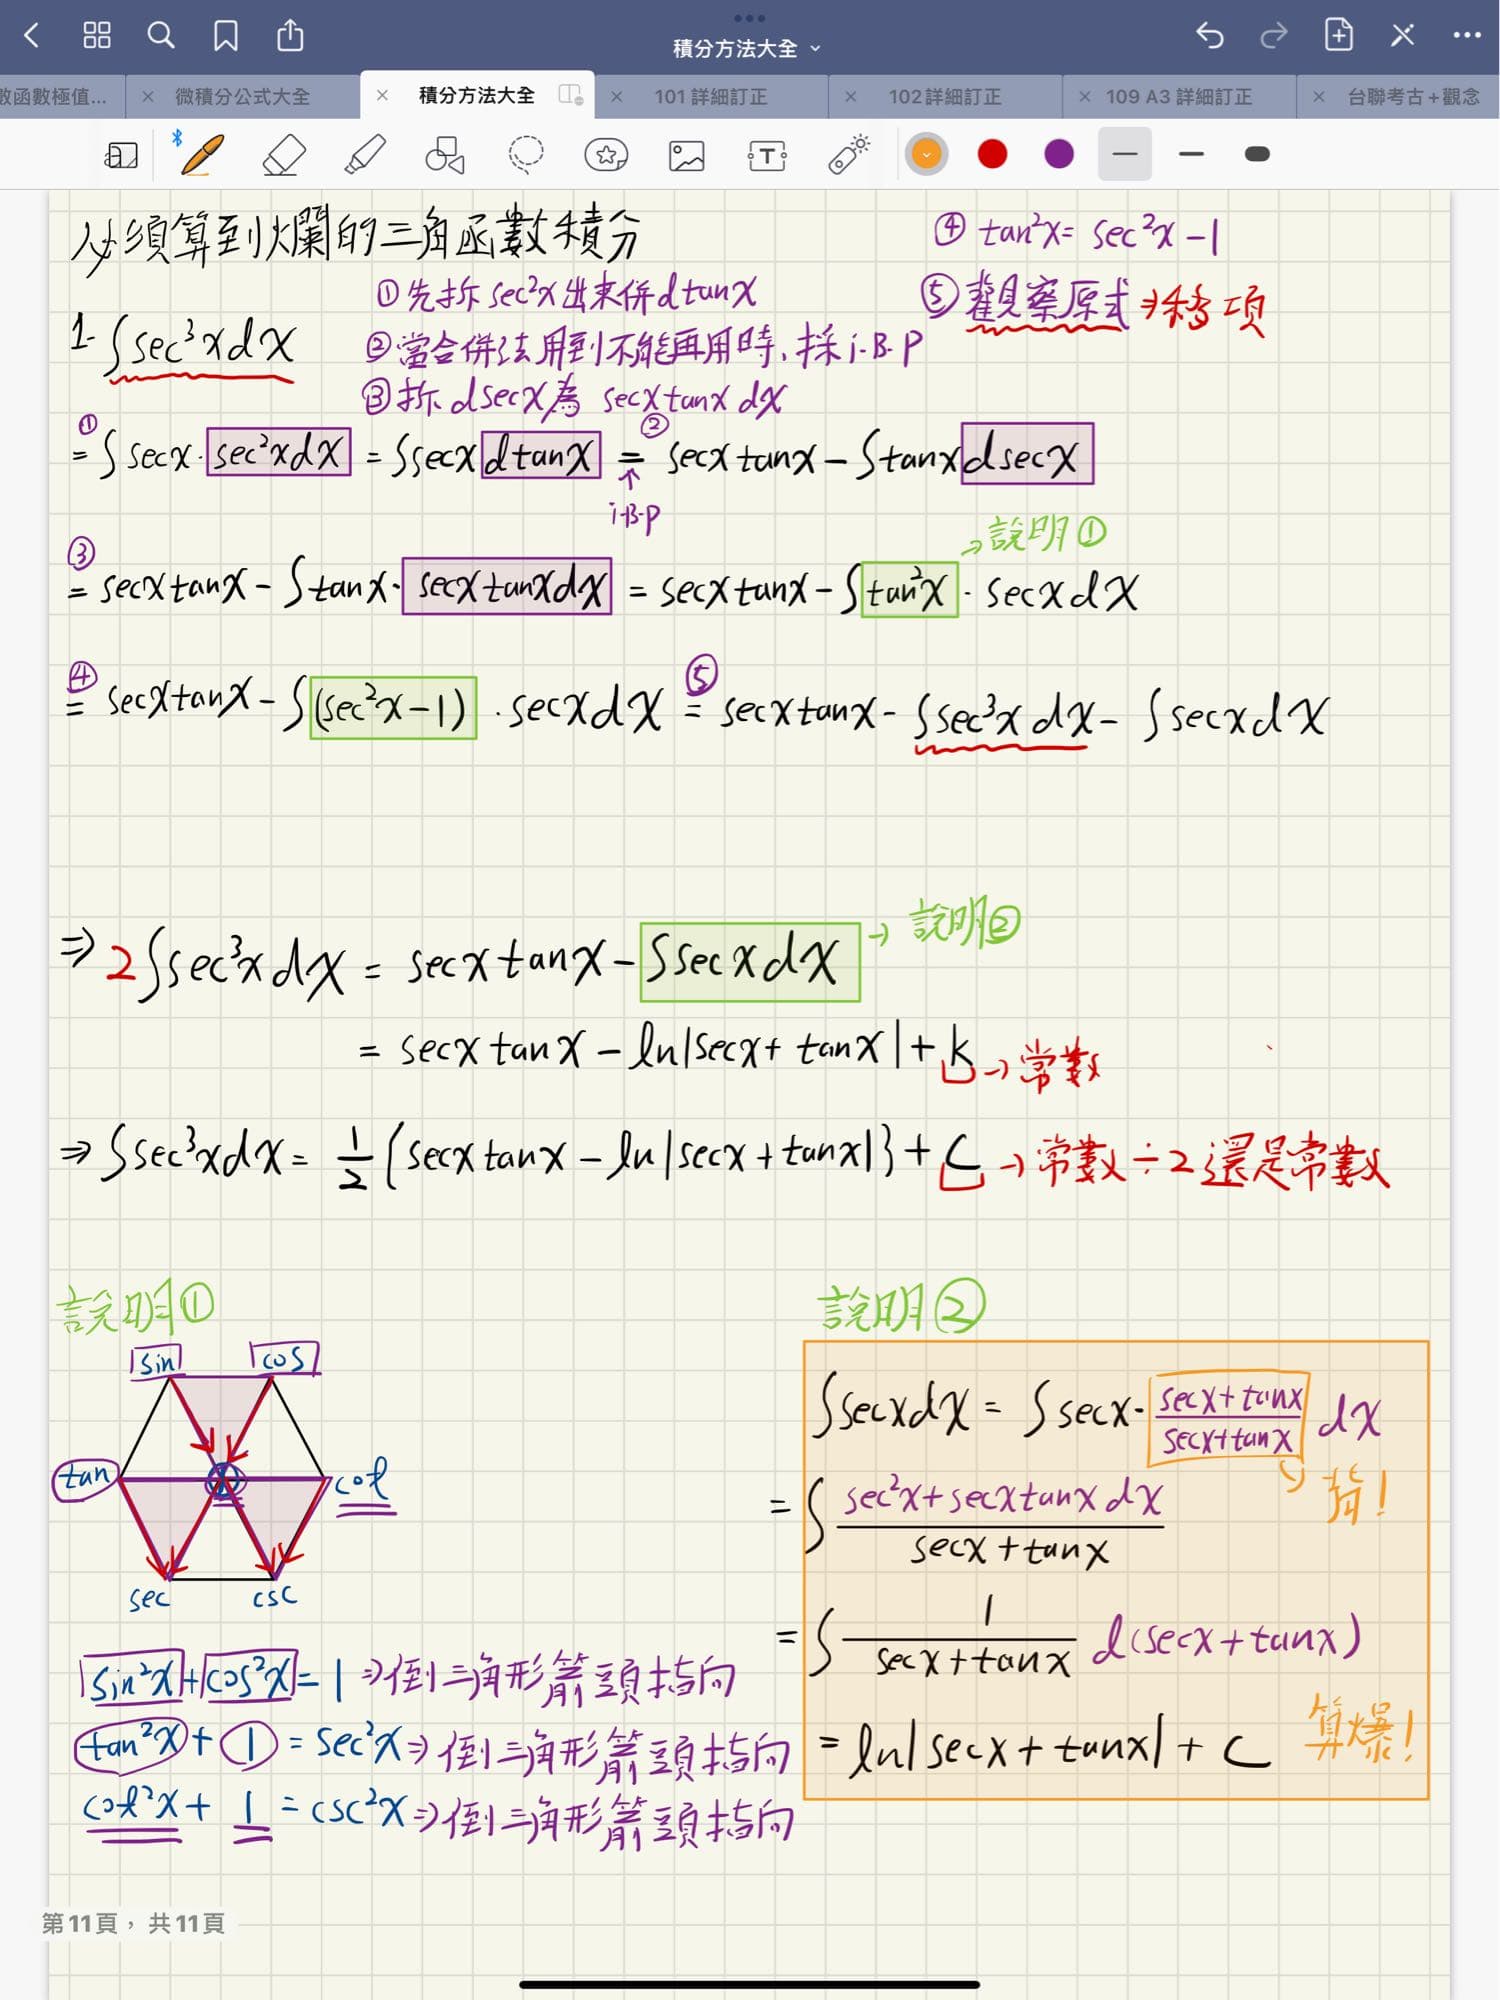 積分方法大全
數函數極值...
微積分公式大全
積分方法大全
101 詳細訂正
102詳細訂正
109 A3 詳細訂正
台聯考古+觀念
必須算到爛的三角函數積分
1. ∫sec³xdx
①先拆 sec²x出來併dtanx
②當合併法用到不能再用時,採i.B.P
③拆 dsecx為 secxtanx dx
④ tan²x= sec²x-1
⑤觀察原式⇒移項
①= ∫secx·sec²xdx = ∫secx dtanx ②= secxtanx-∫tanxdsecx
↑
i.B.P
③= secxtanx-∫tanx·secxtanxdx = secxtanx-∫tan²x·secxdx
→說明①
④= secxtanx-∫(sec²x-1)·secxdx ⑤= secxtanx-∫sec³xdx-∫secxdx
⇒ 2∫sec³xdx = secxtanx-∫secxdx → 說明②
= secxtanx-ln|secx+tanx|+k →常數
⇒ ∫sec³xdx= 1/2{secxtanx-ln|secx+tanx|}+C →常數÷2還是常數
說明①
sin cos
tan 1 cot
sec csc
sin²x+cos²x=1⇒倒三角形箭頭指向
tan²x+1=sec²x⇒倒三角形箭頭指向
cot²x+1=csc²x⇒倒三角形箭頭指向
說明②
∫secxdx= ∫secx·(secx+tanx)/(secx+tanx) dx
背!
=∫(sec²x+secxtanx dx)/(secx+tanx)
=∫1/(secx+tanx) d(secx+tanx)
=ln|secx+tanx|+C 算爆!
第11頁,共11頁